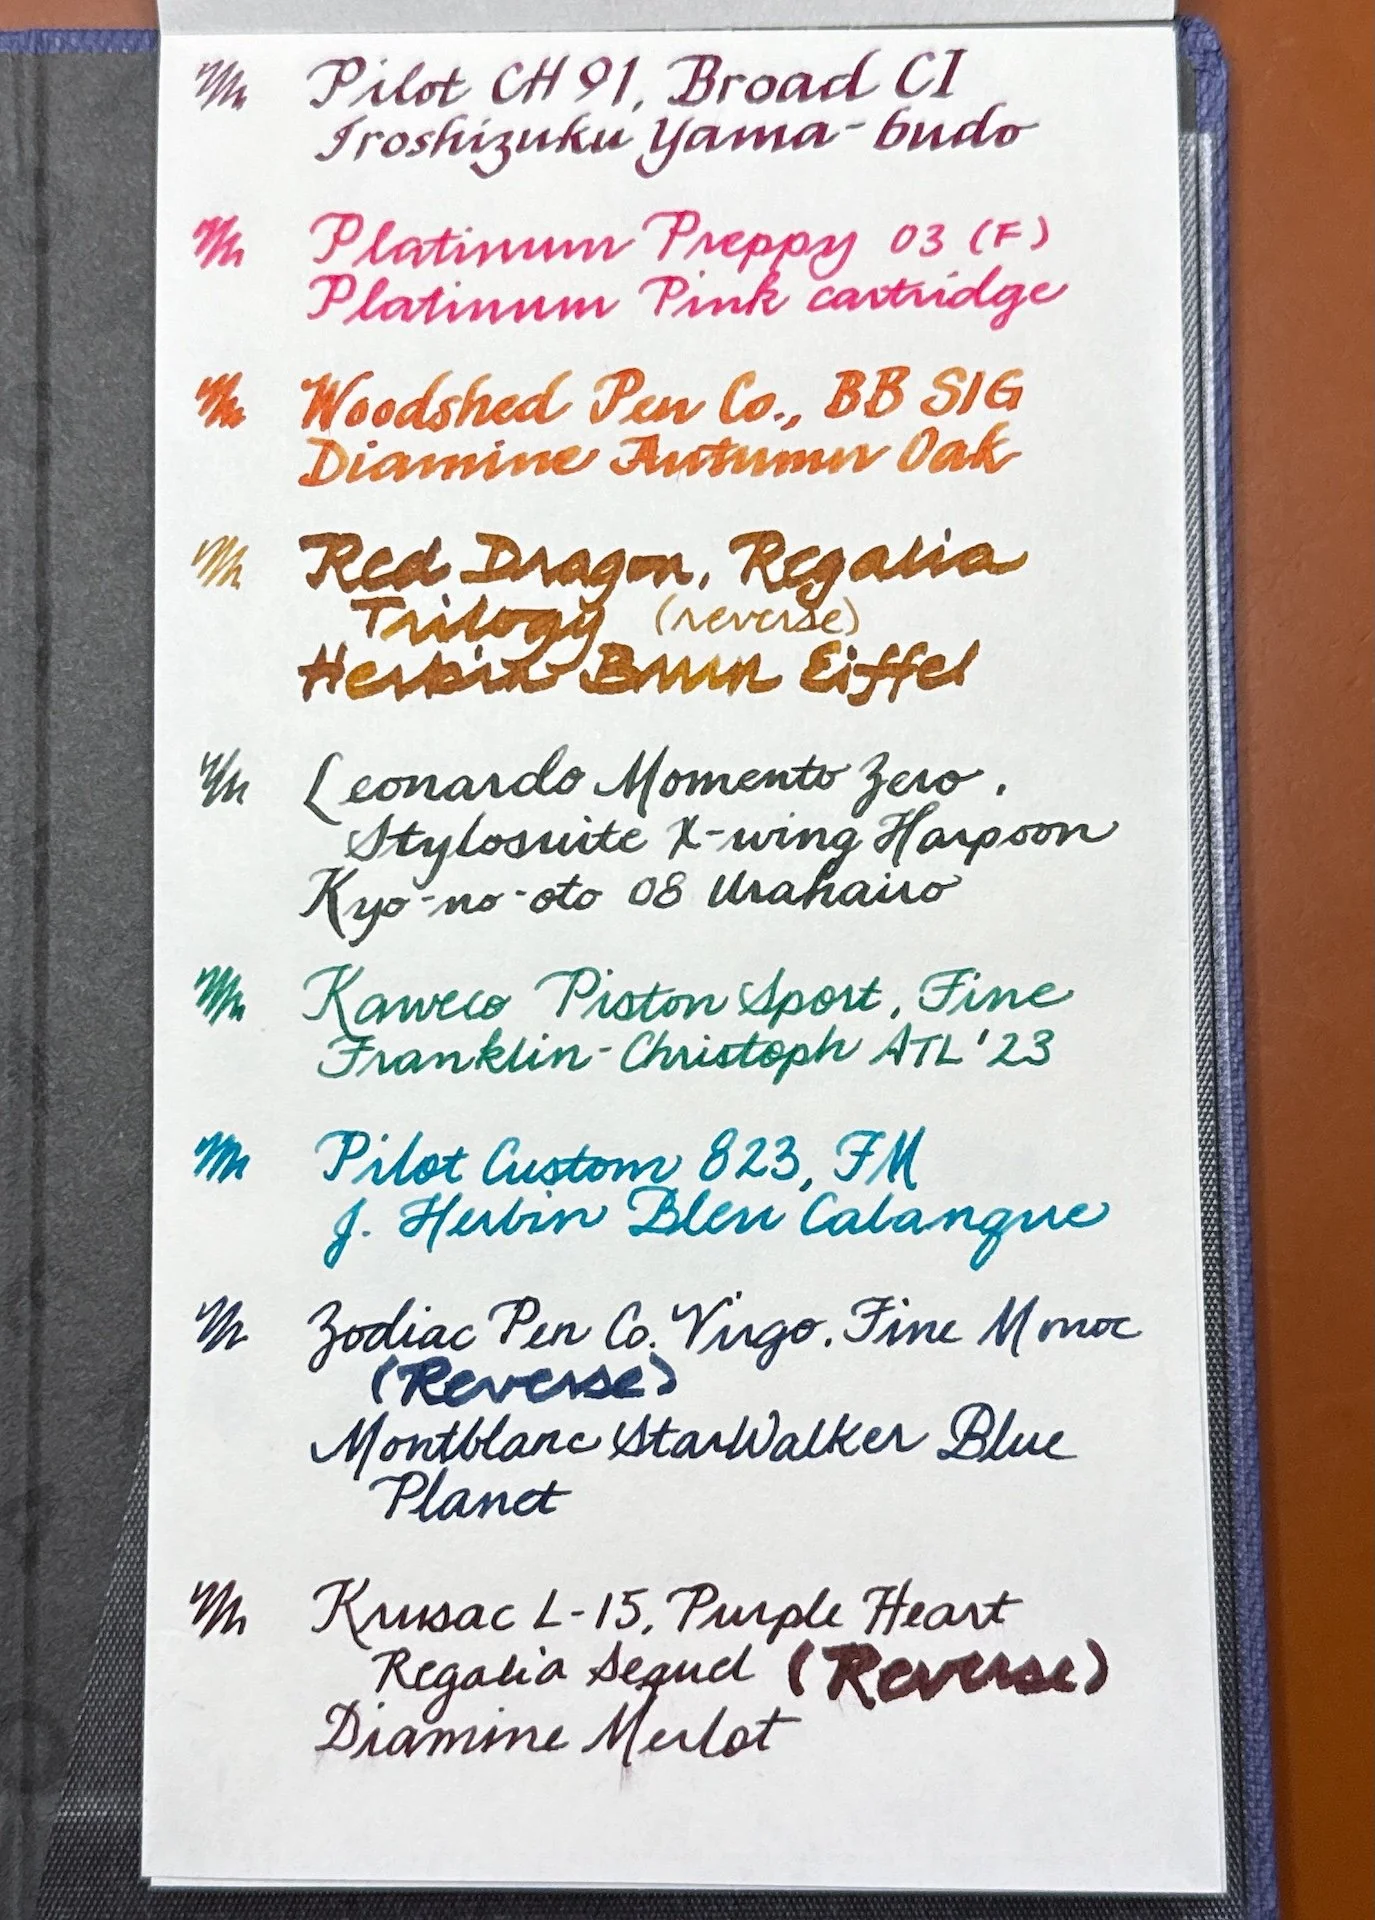 Pilot CH 91, Broad CI
Iroshizuku Yama-budo
Platinum Preppy 03 (F)
Platinum Pink cartridge
Woodshed Pen Co., BB SIG
Diamine Autumn Oak
Red Dragon, Regalia
Trilogy (reverse)
Herbin Brun Eiffel
Leonardo Momento Zero,
Stylosuite X-wing Harpoon
Kyo-no-oto 08 Urahairo
Kaweco Piston Sport, Fine
Franklin-Christoph ATL '23
Pilot Custom 823, FM
J. Herbin Bleu Calanque
Zodiac Pen Co. Virgo, Fine Monoc
(Reverse)
Montblanc StarWalker Blue
Planet
Krusac L-15, Purple Heart
Regalia Sequel (Reverse)
Diamine Merlot